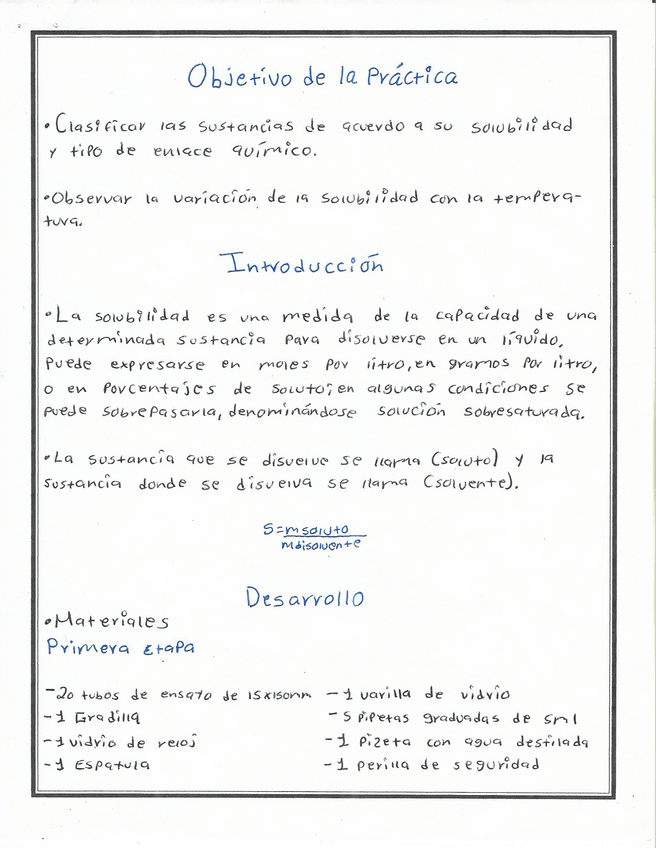 Objetivo de la Práctica
•Clasificar las sustancias de acuerdo a su solubilidad
y tipo de enlace químico.
•Observar la variación de la solubilidad con la tempera-
tura.
Introducción
•La solubilidad es una medida de la capacidad de una
determinada sustancia para disolverse en un líquido.
Puede expresarse en moles por litro, en gramos por litro,
o en porcentajes de soluto; en algunas condiciones se
puede sobrepasarla, denominándose solución sobresaturada.
•La sustancia que se disuelve se llama (soluto) y la
sustancia donde se disuelva se llama (solvente).
S=m soluto
m disolvente
Desarrollo
•Materiales
Primera Etapa
-20 tubos de ensato de 15x150mm
-1 Gradilla
-1 vidrio de reloj
-1 Espatula
-1 varilla de vidrio
-5 Pipetas graduadas de 5ml
-1 Pizeta con agua destilada
-1 perilla de seguridad